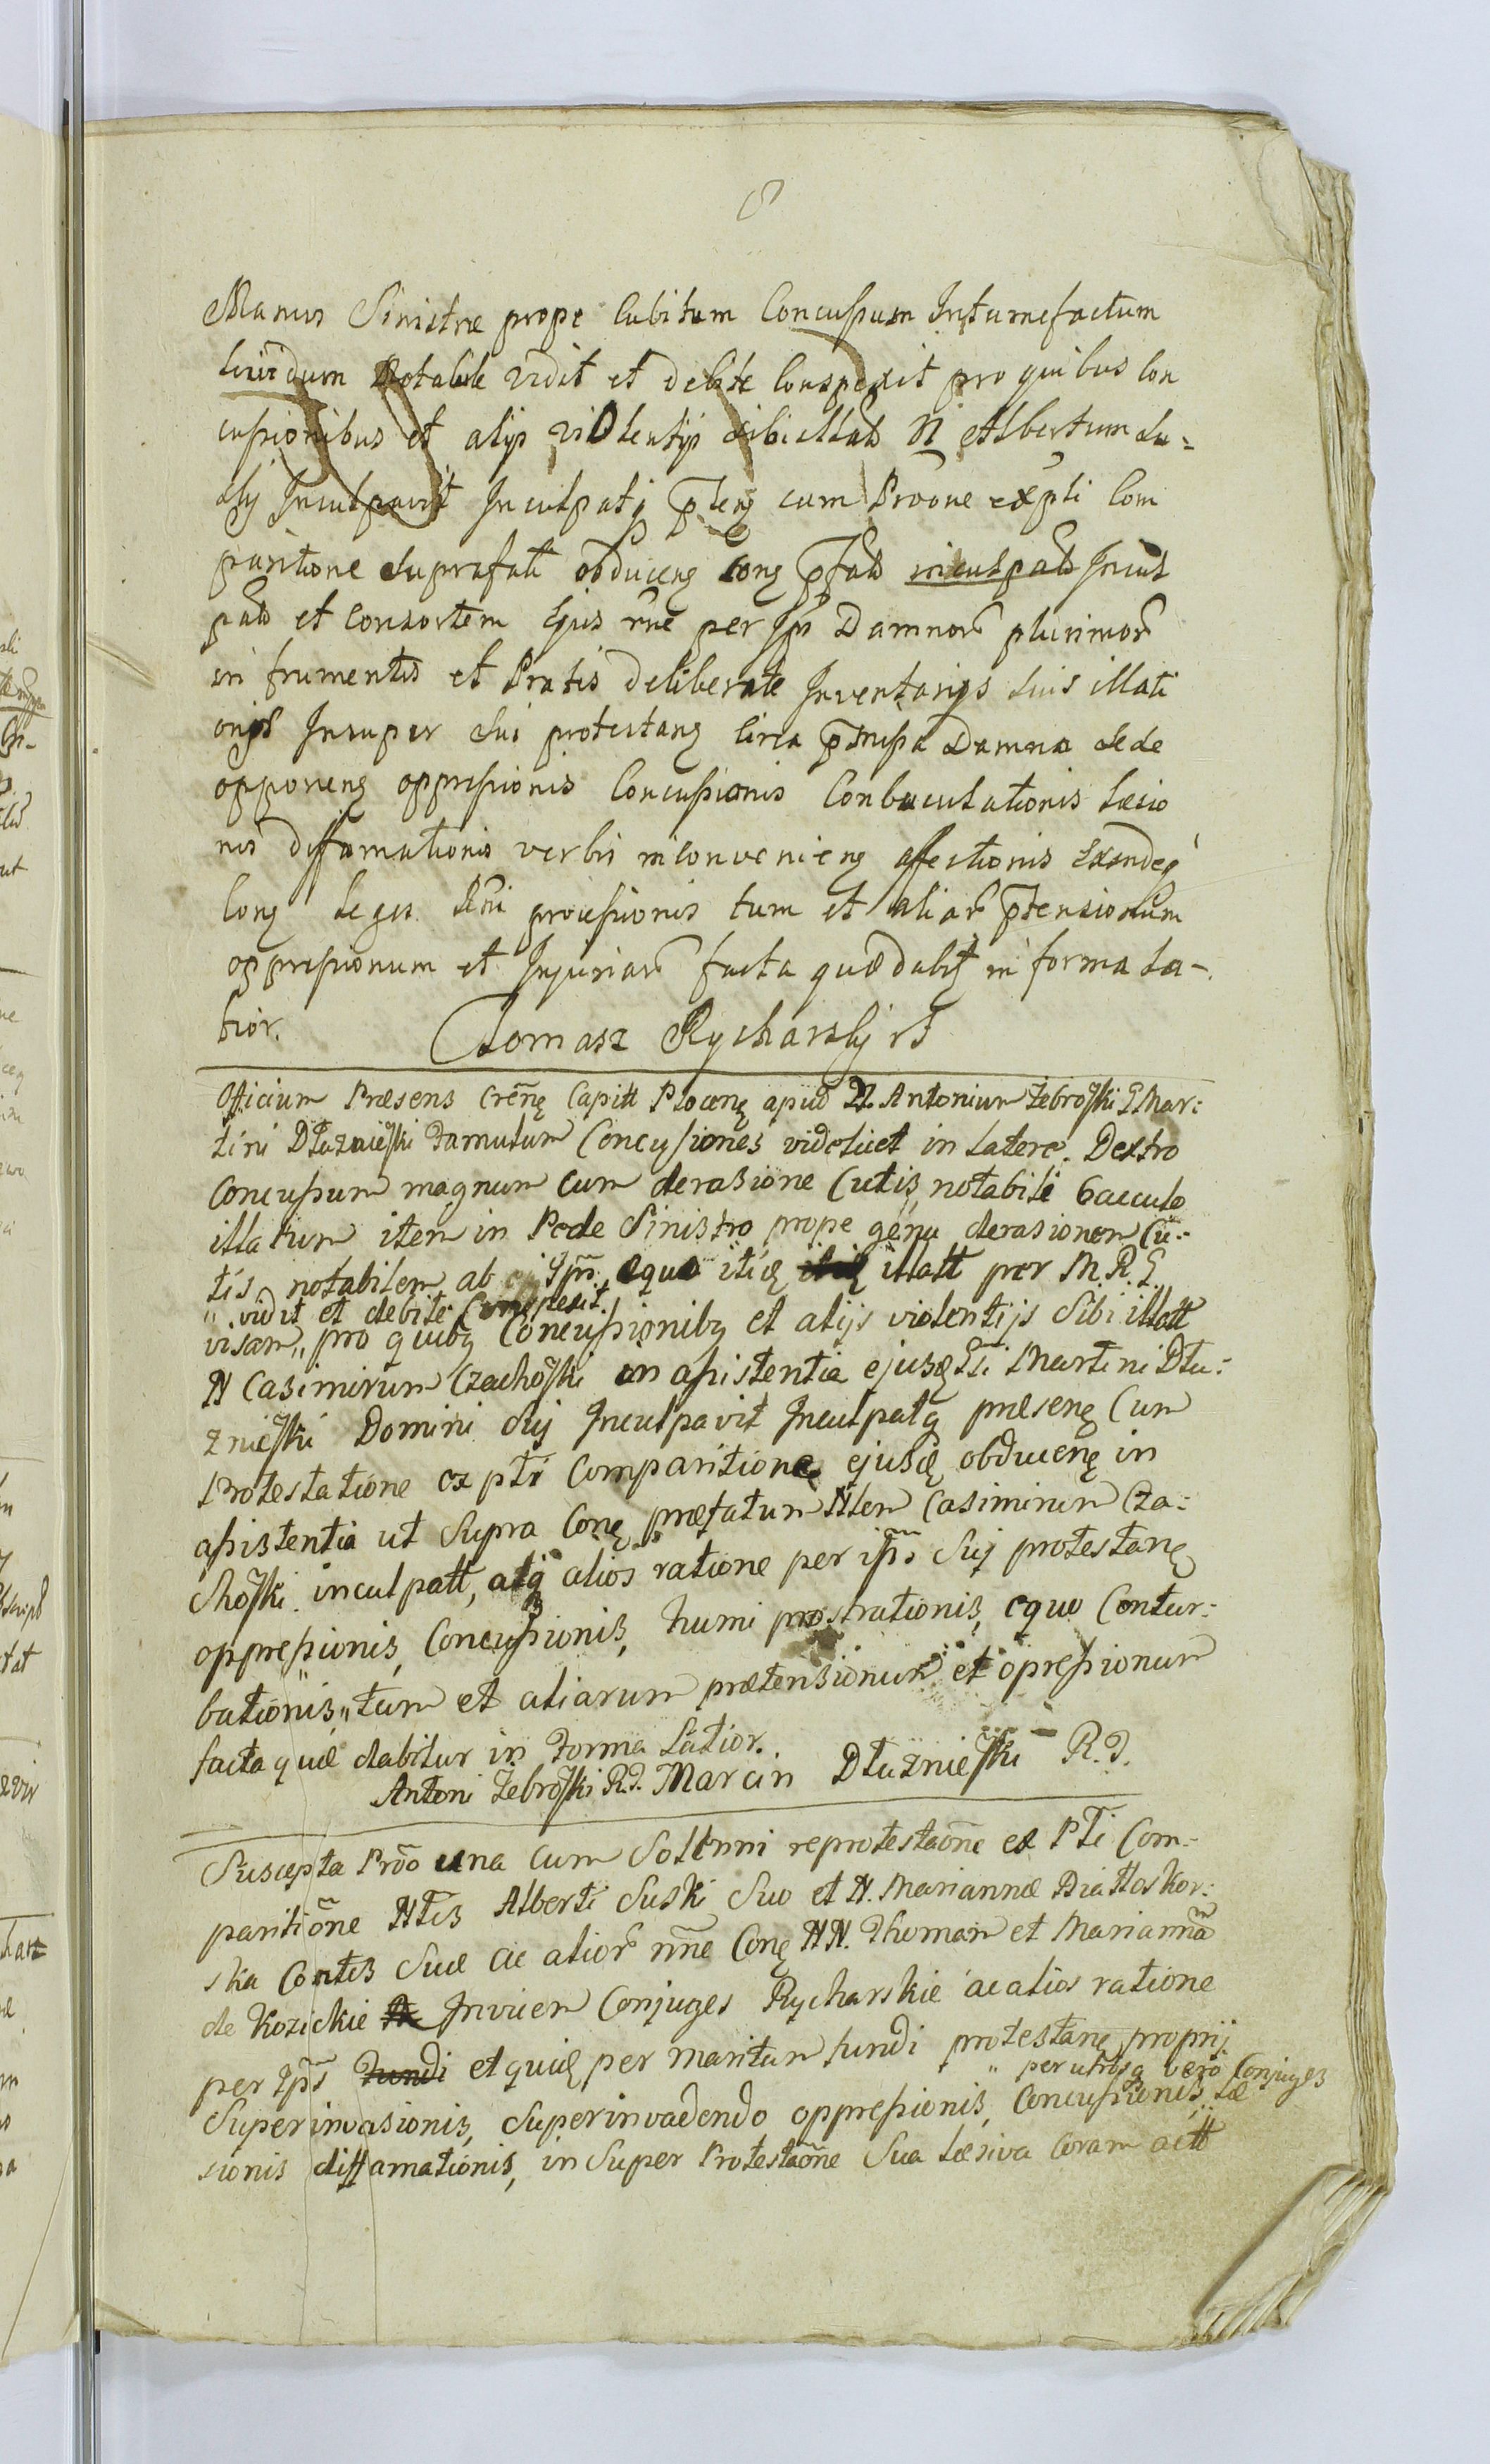 8
Manus Sinistræ prope Cubitum Concussum Intumefactum
lividum Notabile vidit et debite Conspexit pro quibus Con
cussionibus et alijs violentijs sibi illatis N Albertum Su=
ski Inculpavit Inculpatq pteng cum Prõone expti Com
paritione Suprafati obduceng Cong pfatũ inculpatũ Incul
patũ et Consortem Ejus rñe per Ips Damnorũ plurimorũ
in frumentis et Pratis deliberate Inventarijs suis illati
onis Insuper Sui protestang Circa pmissa Damna sese
opponeng oppressionis Concussionis Conbaculationis Læsio
nis diffamationis verbis inconvenieng affectionis Exindeq
Cong Leges processionis tum et aliarũ ptensionum
oppressionum et Injuriarũ facta quæ dabit in forma La-
tior. Tomasz Rycharski rS
Officium Præsens Creñę Capitt Plocenę apud N. Antonium Żebroſki G Mar:
tini Dłużnieſki Famulum Concussiones videlicet in Latere Dextro
Concussum magnum cum derasione Cutis notabili baculo
illatum item in Pede Sinistro prope genu derasionem Cu:
tis notabilem ab Ipm equo itię illatt per M. R. G.
„ vidit et debite Conspexit
visam „ pro quibq Concussionibq et alijs violentijs Sibi illatt
N Casimirum Czachoſki in assistentia ejusdę Martini Dłu:
żnieſki Domini Sui Inculpavit Inculpatq præsenę Cum
Protestatione ex pti Comparitione ejusdę obducenę in
assistentia ut Supra Conę præfatum Nlem Casimirum Cza:
choſki inculpatt, atq alios ratione per ips Sui protestanę
oppressionis, Concussionis, humi prostrationis, equo Contur:
bationis „ tum et aliarum prætensionum et opressionum
facta quæ dabitur in Forma Latior.
Antoni Żebroſki R.S. Marcin Dłużnieſki R.S.
Suscepta Prõo una cum Solenni reprotestaõne ex Pti Com:
paritiõne Ntis Alberti Suski Suo et N. Mariannæ
ska Contis Suæ ac aliorũ nñe Conę NN. Thomam et Mariannã
de Kozickie Invicem Conjuges Rycharskie ac alios ratione
per Ips Fundi et quidę per maritum fundi protestanę proprij
„ per utrosq vero Conjuges
Superinvasionis, Superinvadendo oppressionis, Concussionis, Læ
sionis diffamationis, in Super Protestaõne Sua Læsiva Coram actt